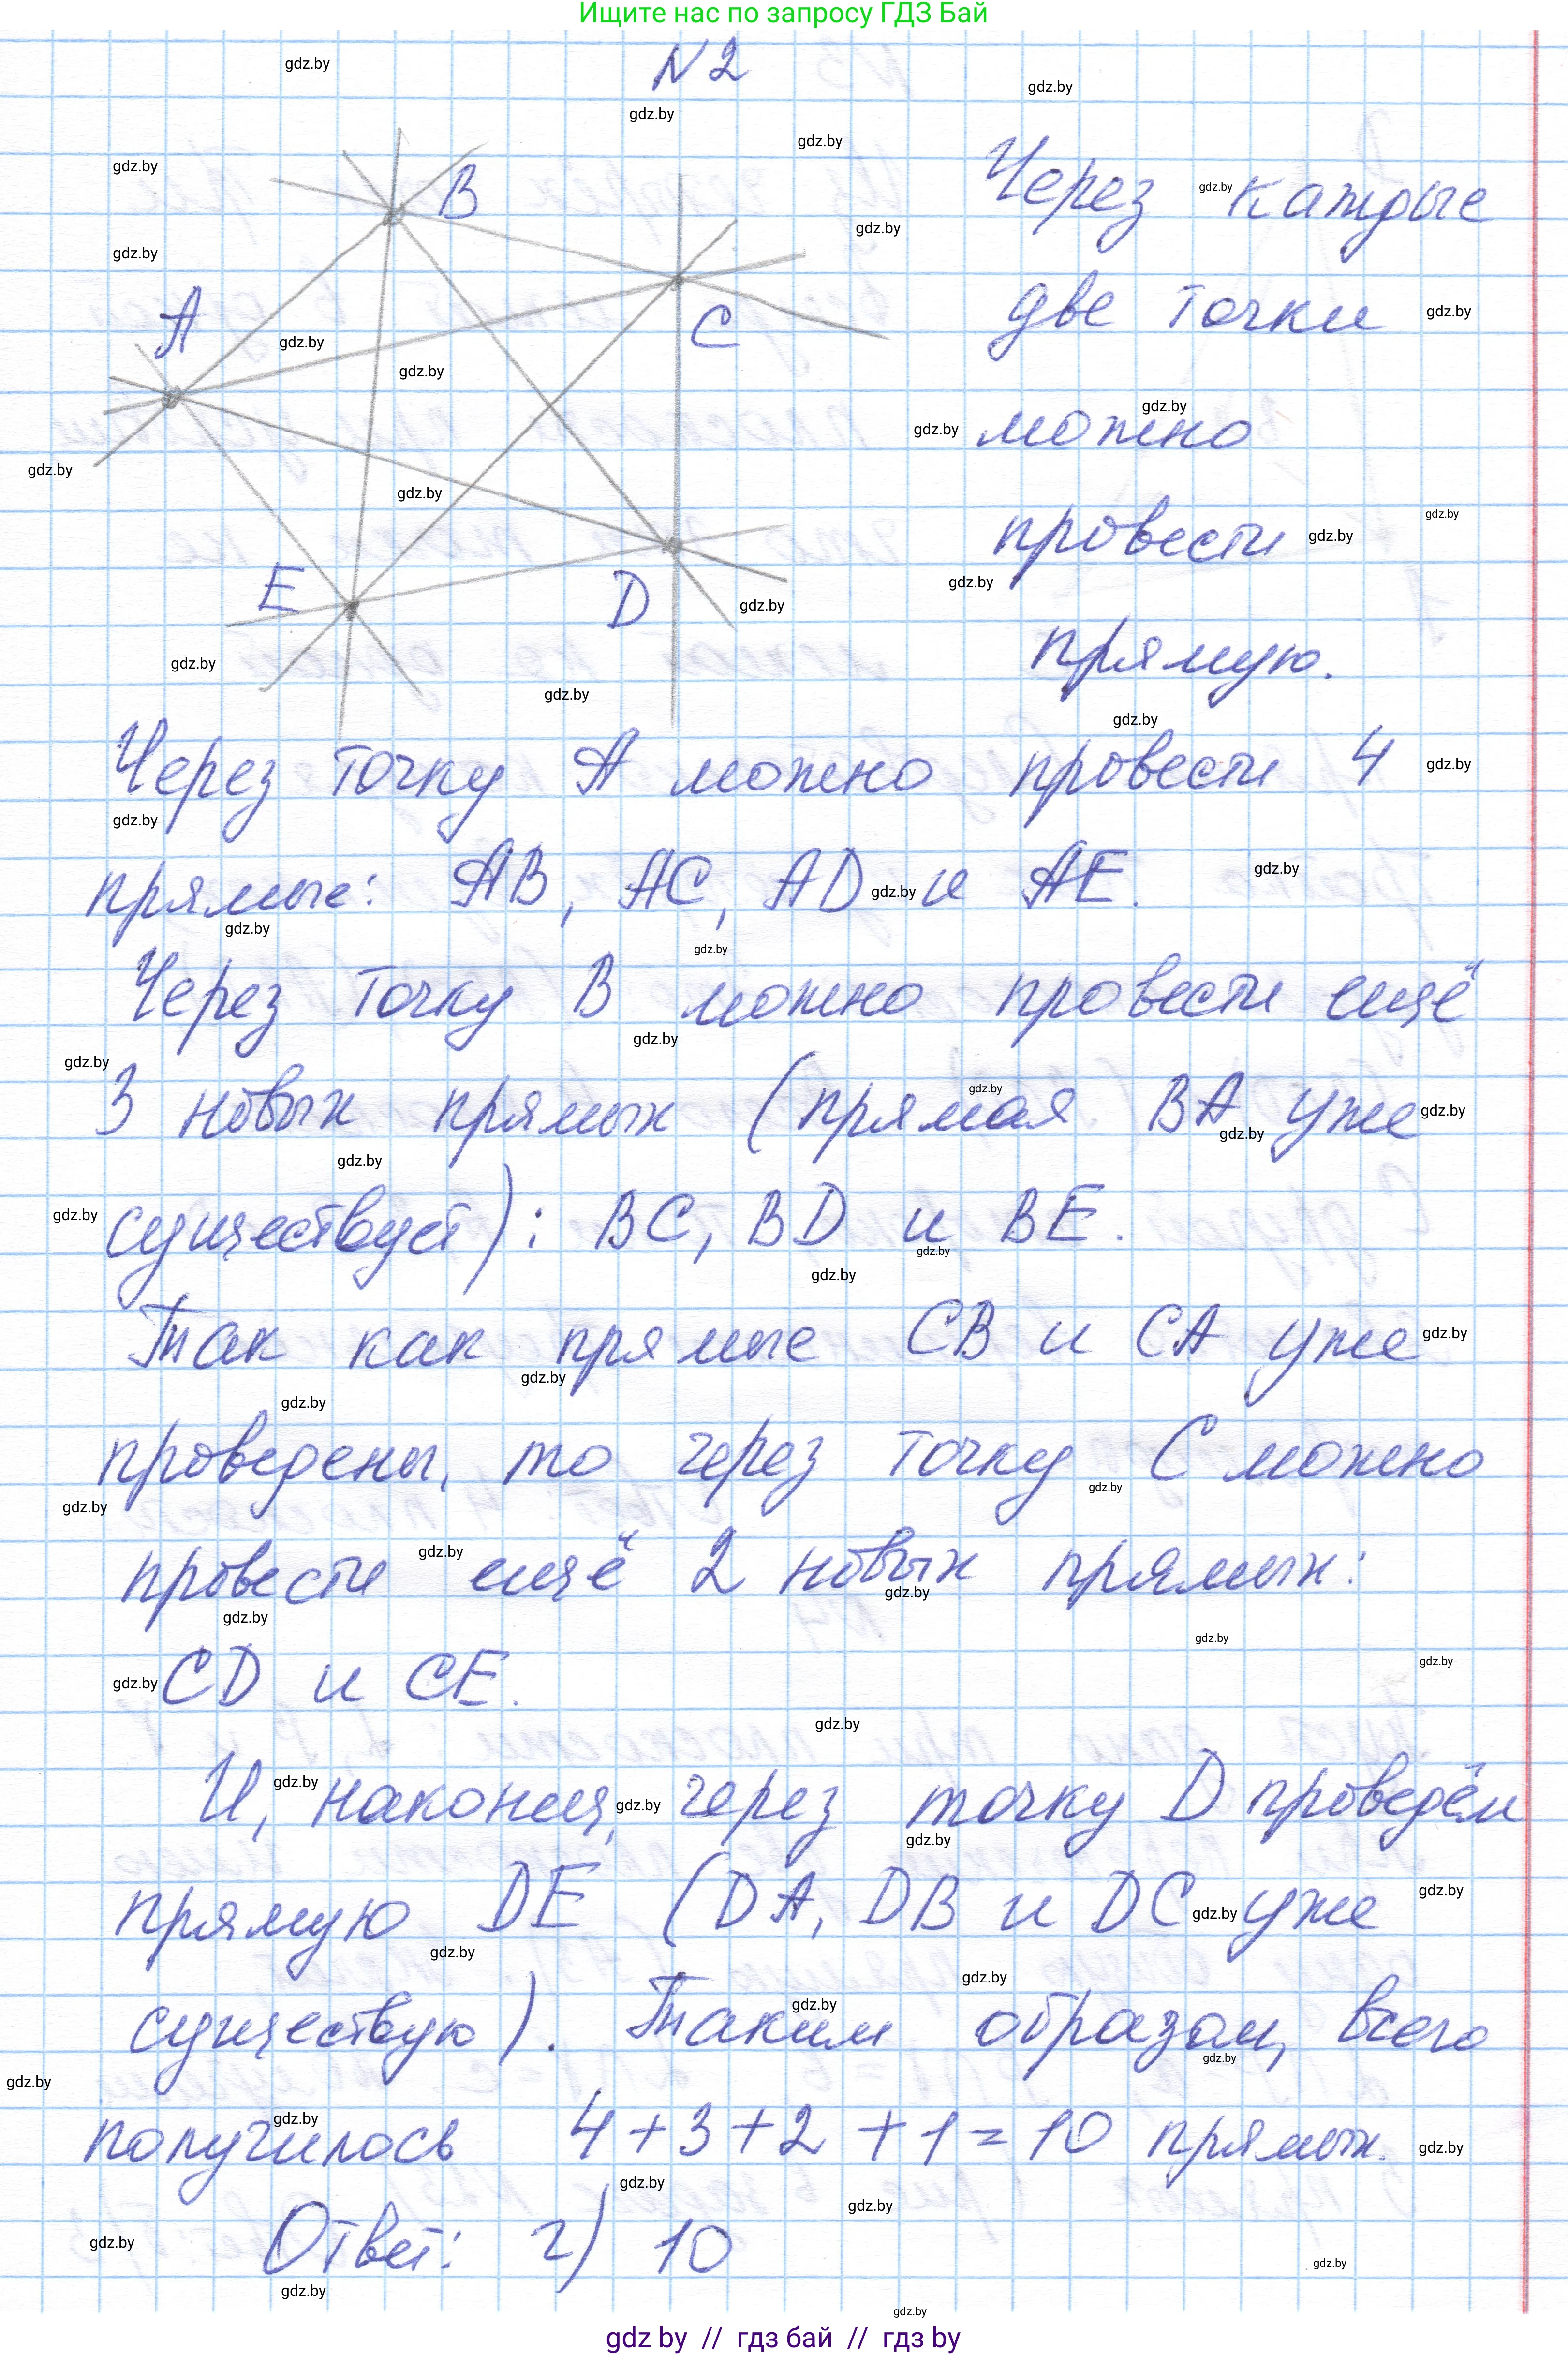 Ищите нас по запросу ГДЗ Бай
N2
B
A
C
E
D
Через каждые
две точки
можно
провести
прямую.
Через точку А можно провести 4
прямые: АВ, АС, AD и АЕ.
Через точку В можно провести ещё
3 новых прямых (прямая ВА уже
существует): ВС, BD и ВЕ.
Так как прямые СВ и СА уже
проведены, то через точку С можно
провести ещё 2 новых прямых:
CD и СЕ.
И, наконец, через точку D проведём
прямую DE (DA, DB и DC уже
существую). Таким образом, всего
получилось 4+3+2+1=10 прямых.
Ответ: г) 10
gdz by // гдз бай // гдз by